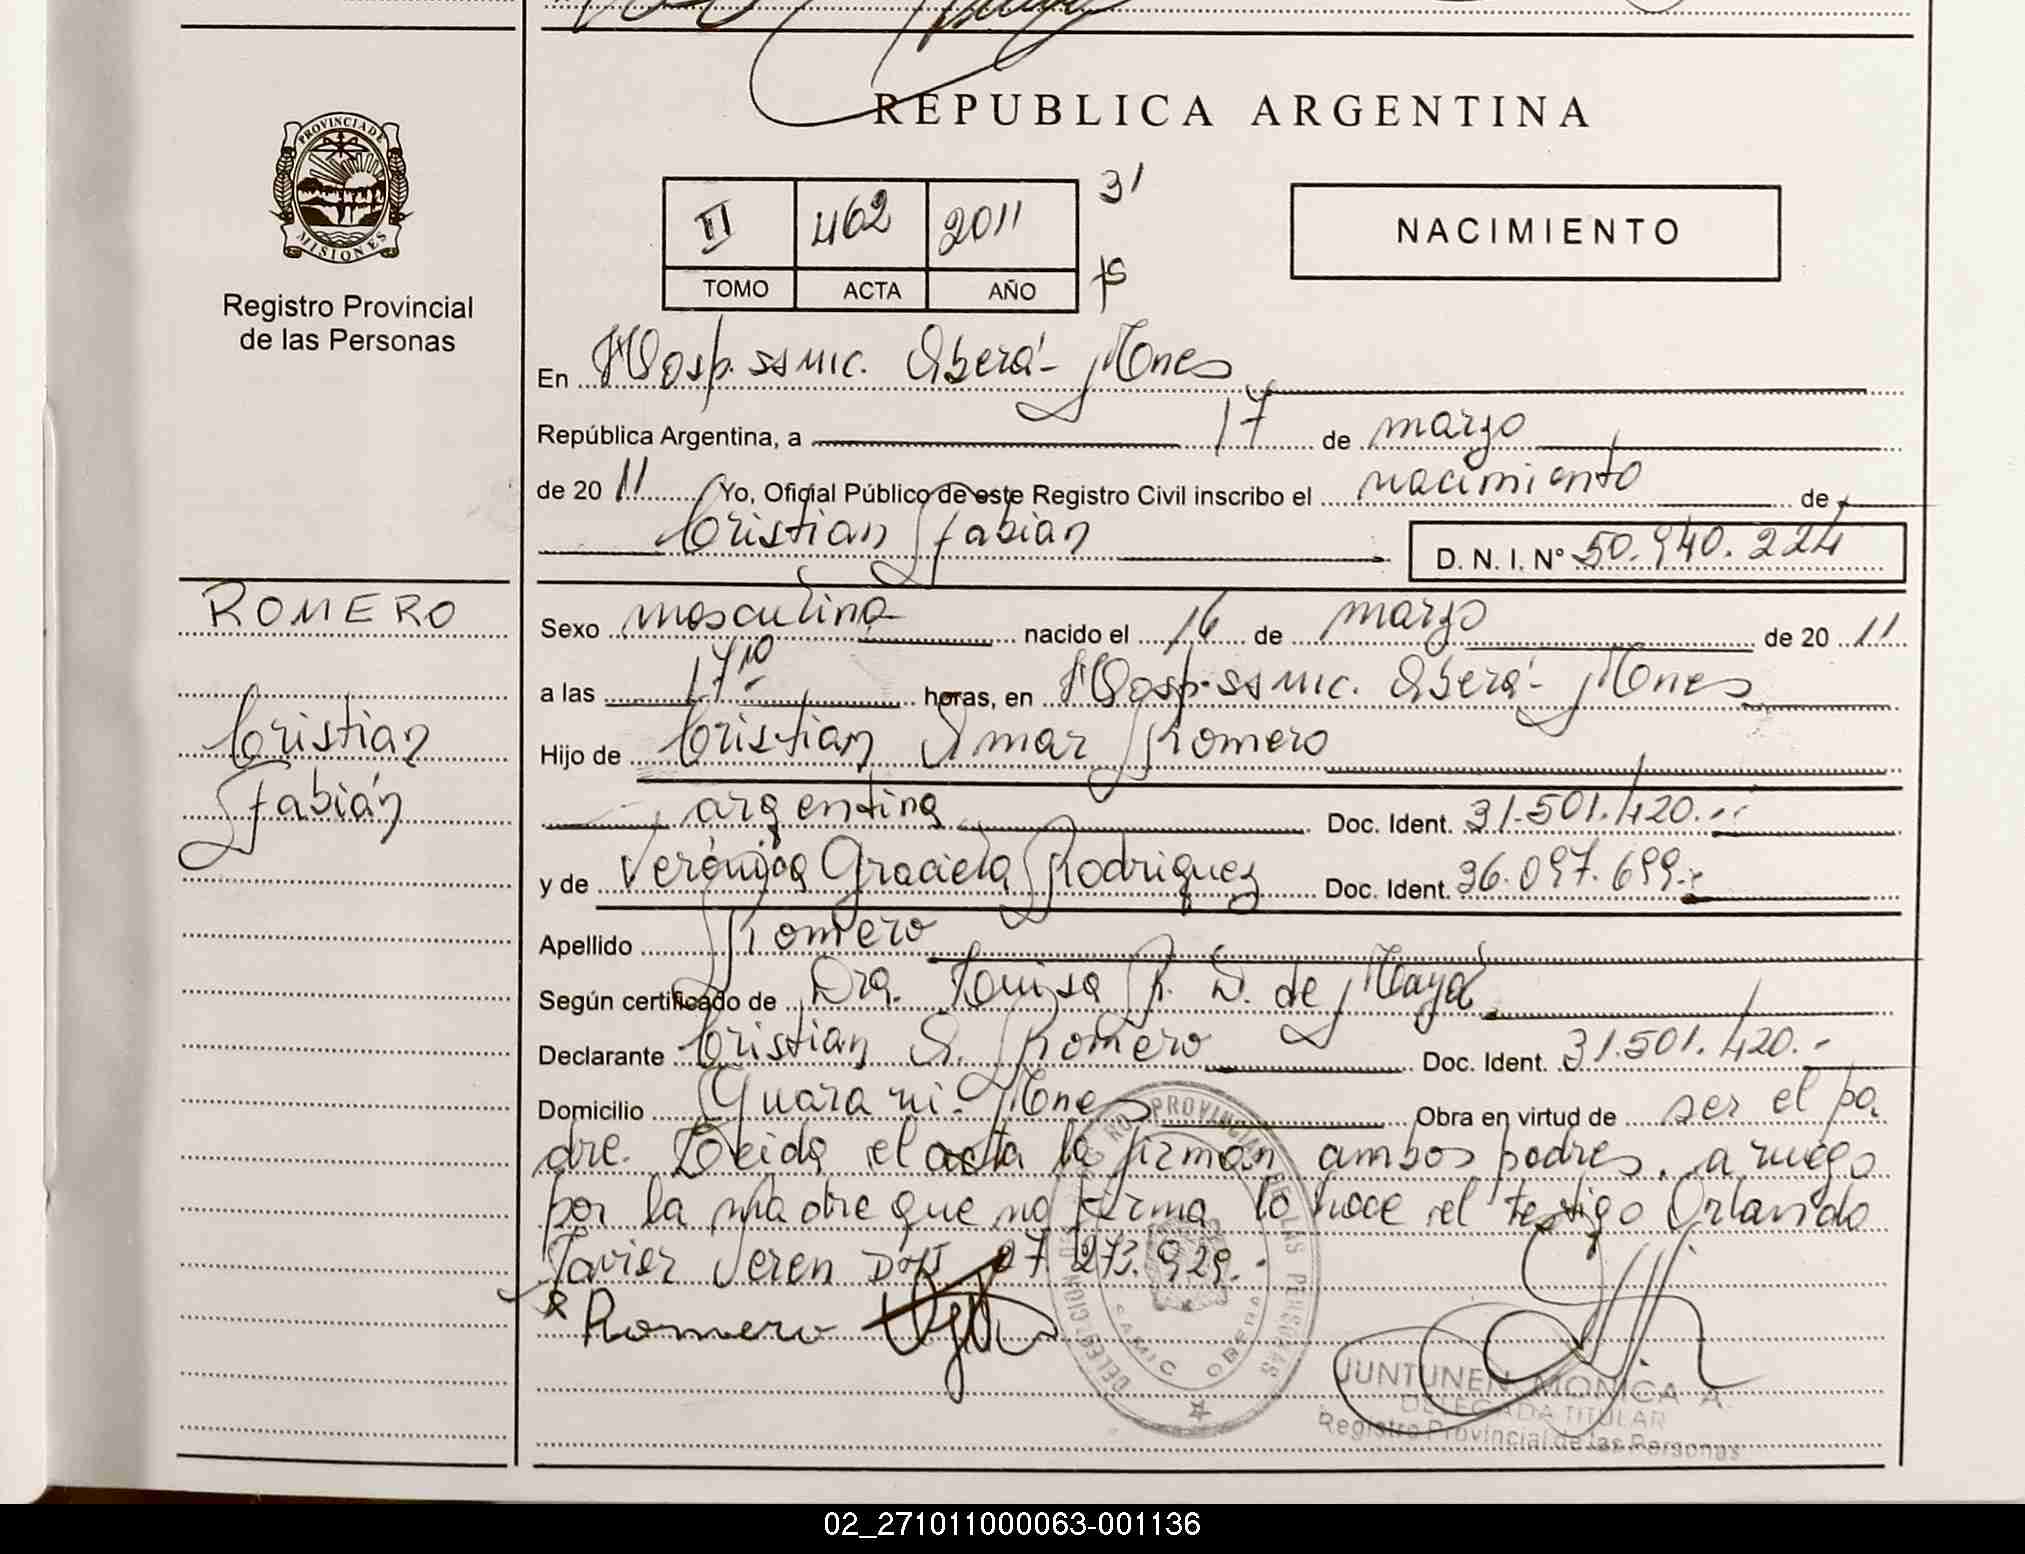 REPUBLICA ARGENTINA
PROVINCIA DE
MISIONES
Registro Provincial
de las Personas
II 462 2011
TOMO ACTA AÑO
NACIMIENTO
En Hosp. SSMIC. Oberá - Mnes
República Argentina, a 17 de marzo
de 2011 Yo, Oficial Público de este Registro Civil inscribo el nacimiento de
Cristian Fabián D. N. I. Nº 50.940.224
ROMERO
Cristian
Fabián
Sexo masculino nacido el 16 de marzo de 2011
a las 17¹⁰ horas, en Hosp. SSMIC. Oberá - Mnes
Hijo de Cristian Omar Romero
argentino Doc. Ident. 31.501.420.-
y de Verónica Graciela Rodriguez Doc. Ident. 36.097.699.-
Apellido Romero
Según certificado de Dra. Luisa R. D. de Mayá
Declarante Cristian O. Romero Doc. Ident. 31.501.420.-
Domicilio Guaraní - Mnes Obra en virtud de ser el pa
dre. Leída el acta la firman ambos padres, a ruego
por la madre que no firma lo hace el testigo Orlando
Javier DNI 27.273.929.-
Romero
JUNTUNEN MONICA A.
DELEGADA TITULAR
Registro Provincial de las Personas
02_271011000063-001136